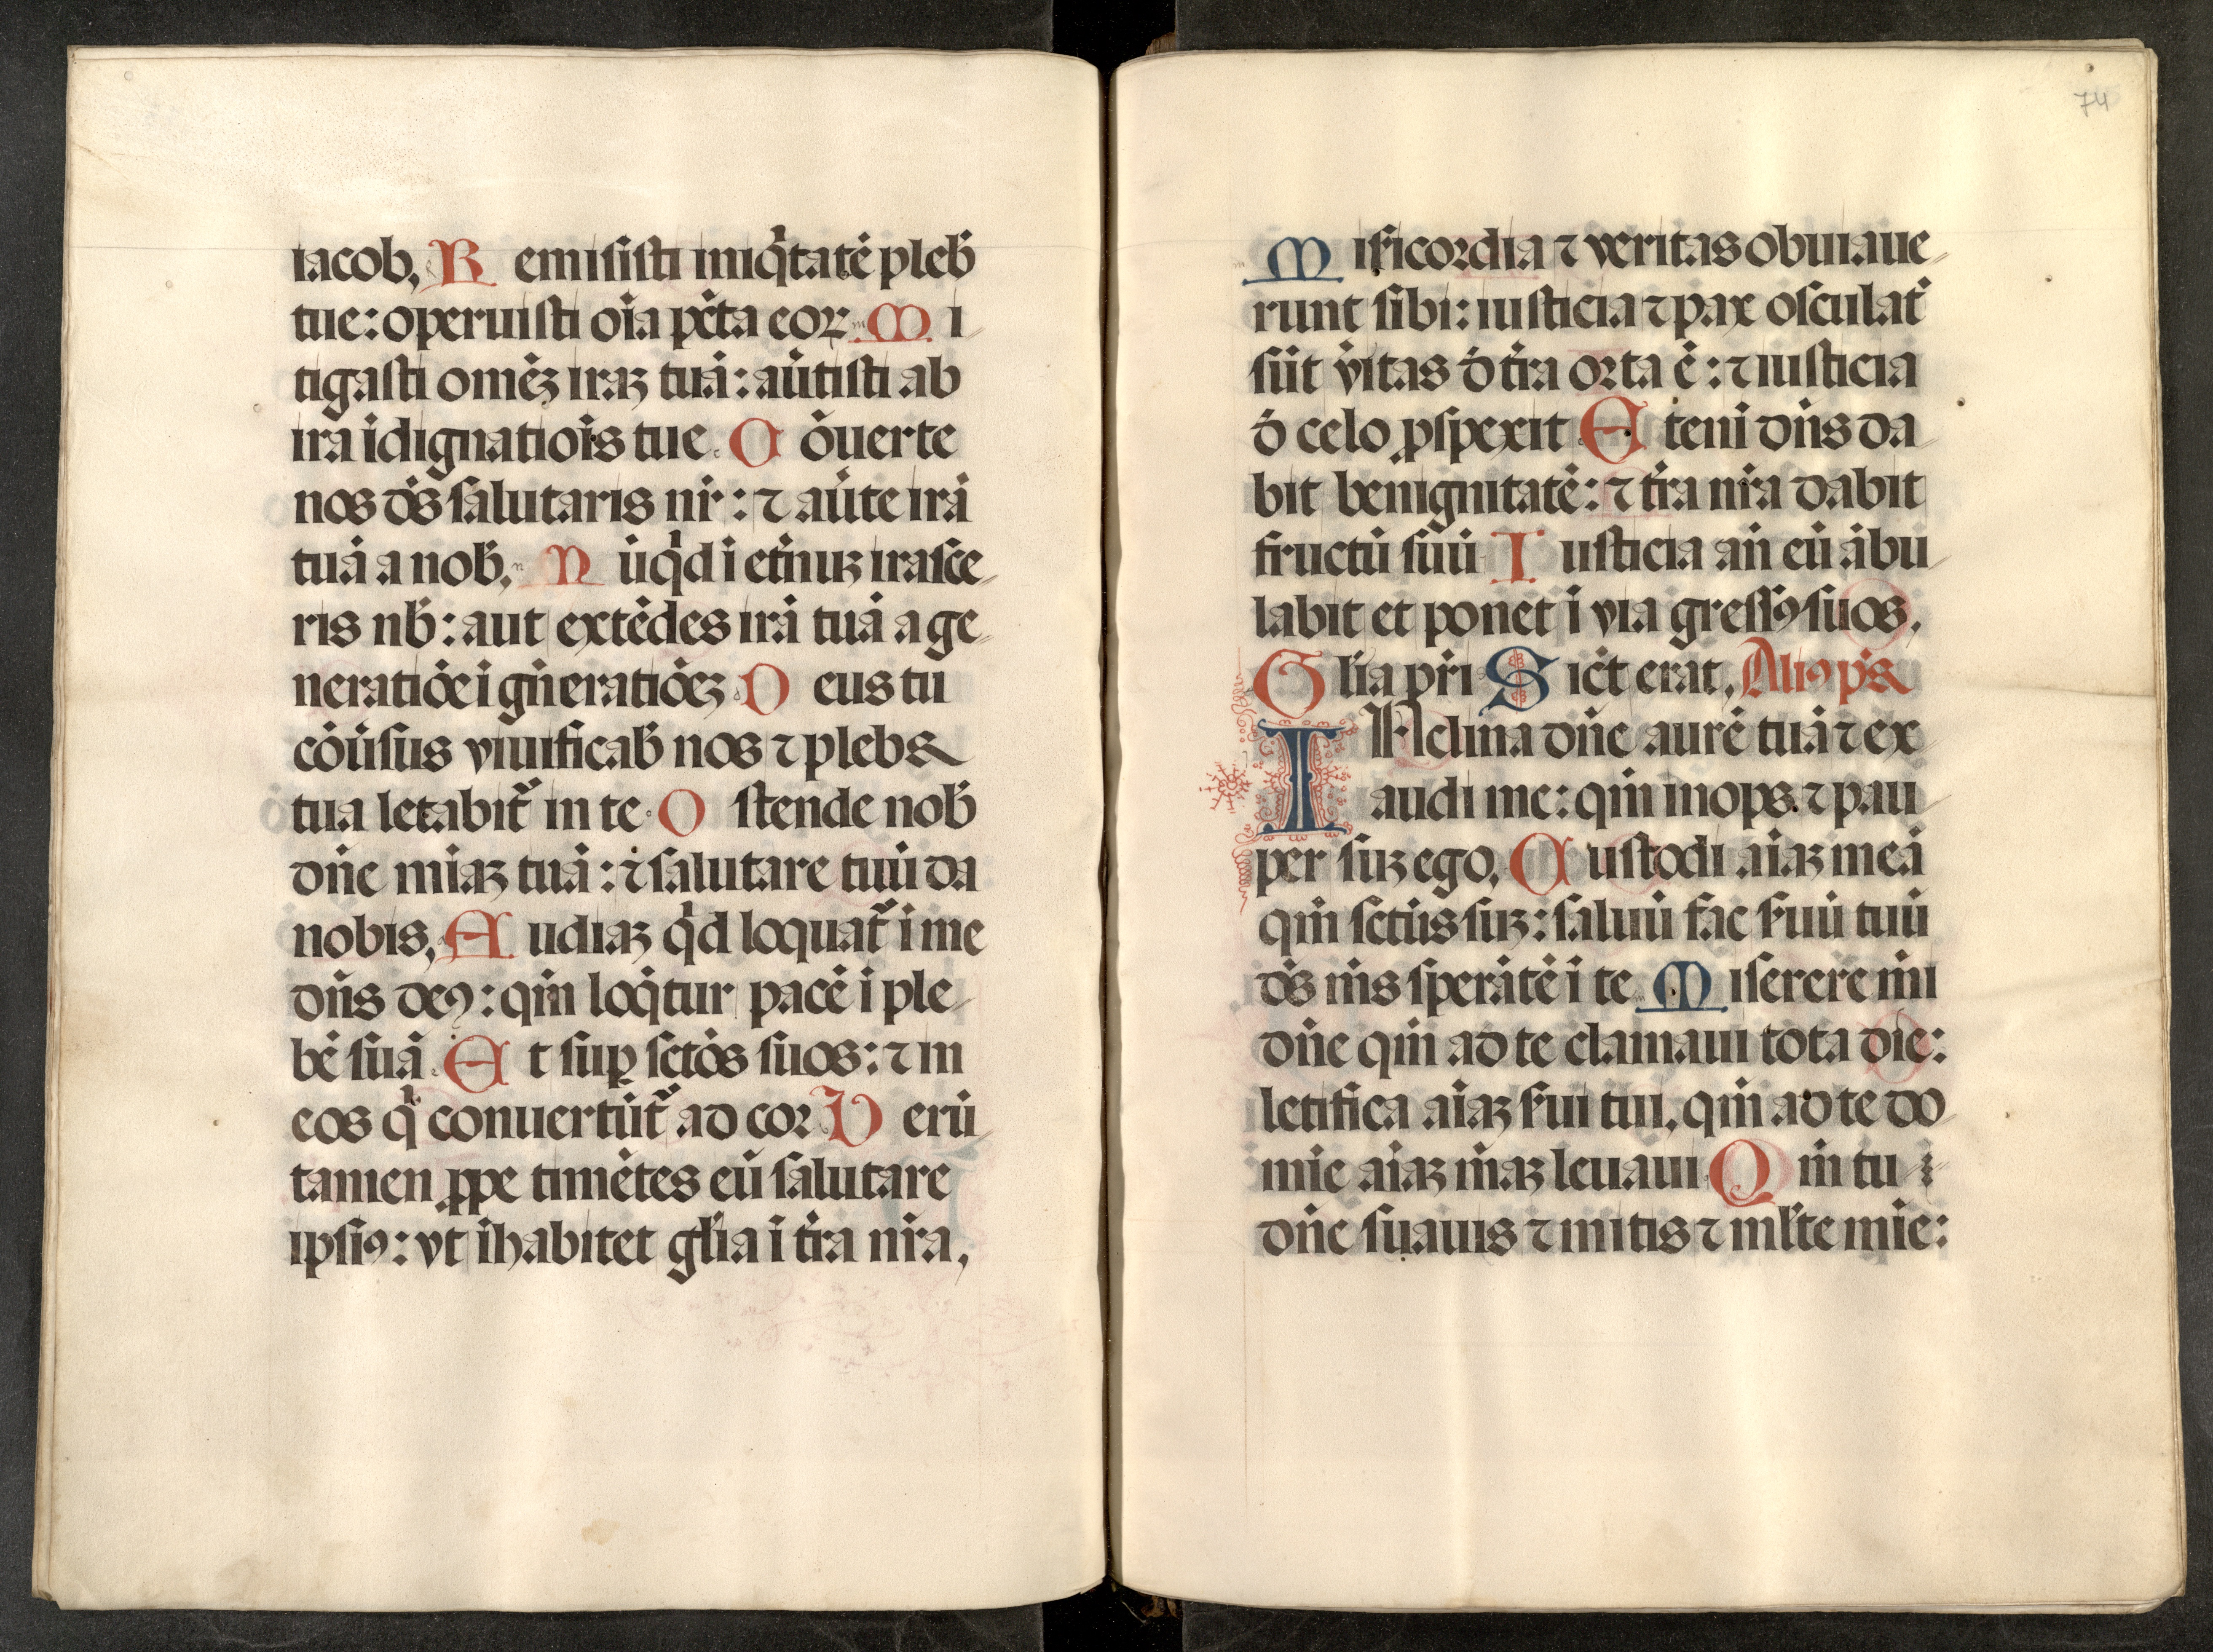 iacob, R emisisti iniq̇tatē pleb̄
tue: operuisti oīa pctā eoꝝ M i
tigasti omēꝫ iraꝫ tuā: aūtisti ab
ira īdignatiōis tue. C ōuerte
nos ds̄ salutaris nr̄: ⁊ aūte irā
tuā a nob̄, N ūqd ī etn̄uꝫ irasce
ris nb̄: aut extēdes irā tuā a ge
neratiōe ī gn̄eratiōeꝫ D eus tu
cōūsus viuificab̄ nos ⁊ plebs
tua letabit᷑ in te. O stende nob̄
dn̄e miaꝫ tuā: ⁊ salutare tuū da
nobis, A udiaꝫ qd loquat᷑ ī me
dn̄s deꝰ: qm̄ loq̇tur pacē ī ple
bē suā. E t suꝑ sctōs suos: ⁊ in
eos q̇ conuertūt᷑ ad cor V erū
tamen ꝓpe timētes eū salutare
ipsiꝰ: vt īhabitet glīa ī tr̄a nr̄a,
74
M isc̄icordia ⁊ veritas obuiaue
runt sibi: iusticia ⁊ pax osculat̄
sūt v̄itas d̄ tr̄a orta ē: ⁊ iusticia
d̄ celo ꝓspexit E teni dn̄s da
bit benignitatē: ⁊ tr̄a nr̄a dabit
fructū suū I usticia an̄ eū ābu
labit et ponet ī via gressꝰ suos,
G līa pr̄i S ict̄ erat, Aliꝰ ps̄
I Nclina dn̄e aurē tuā ⁊ ex
audi me: qm̄ inops ⁊ pau
per suꝫ ego, C ustodi aīaꝫ meā
qm̄ sctūs suꝫ: saluū fac s̄uū tuū
ds̄ m̄s sperātē ī te M iserere m̄i
dn̄e qm̄ ad te clamaui tota die:
letifica aīaꝫ s̄ui tui, qm̄ ad te do
mīe aīaꝫ m̄aꝫ leuaui Q m̄ tu
dn̄e suauis ⁊ mitis ⁊ ml̄te mīe: